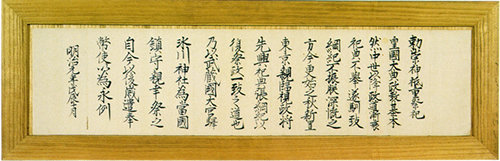 勅崇神祇重祭祀
皇國大典政教基本
然中世以降政道漸衰
祀典不擧遂馴致
綱紀不振朕深慨之
方今更始之秋新置
東京親臨視政將
先興祀典張綱紀以
復祭政一致之道也
乃以武藏國大宮驛
氷川神社為當國
鎮守親幸祭之
自今以後歳遣奉
幣使以為永例
明治元年戊辰十月